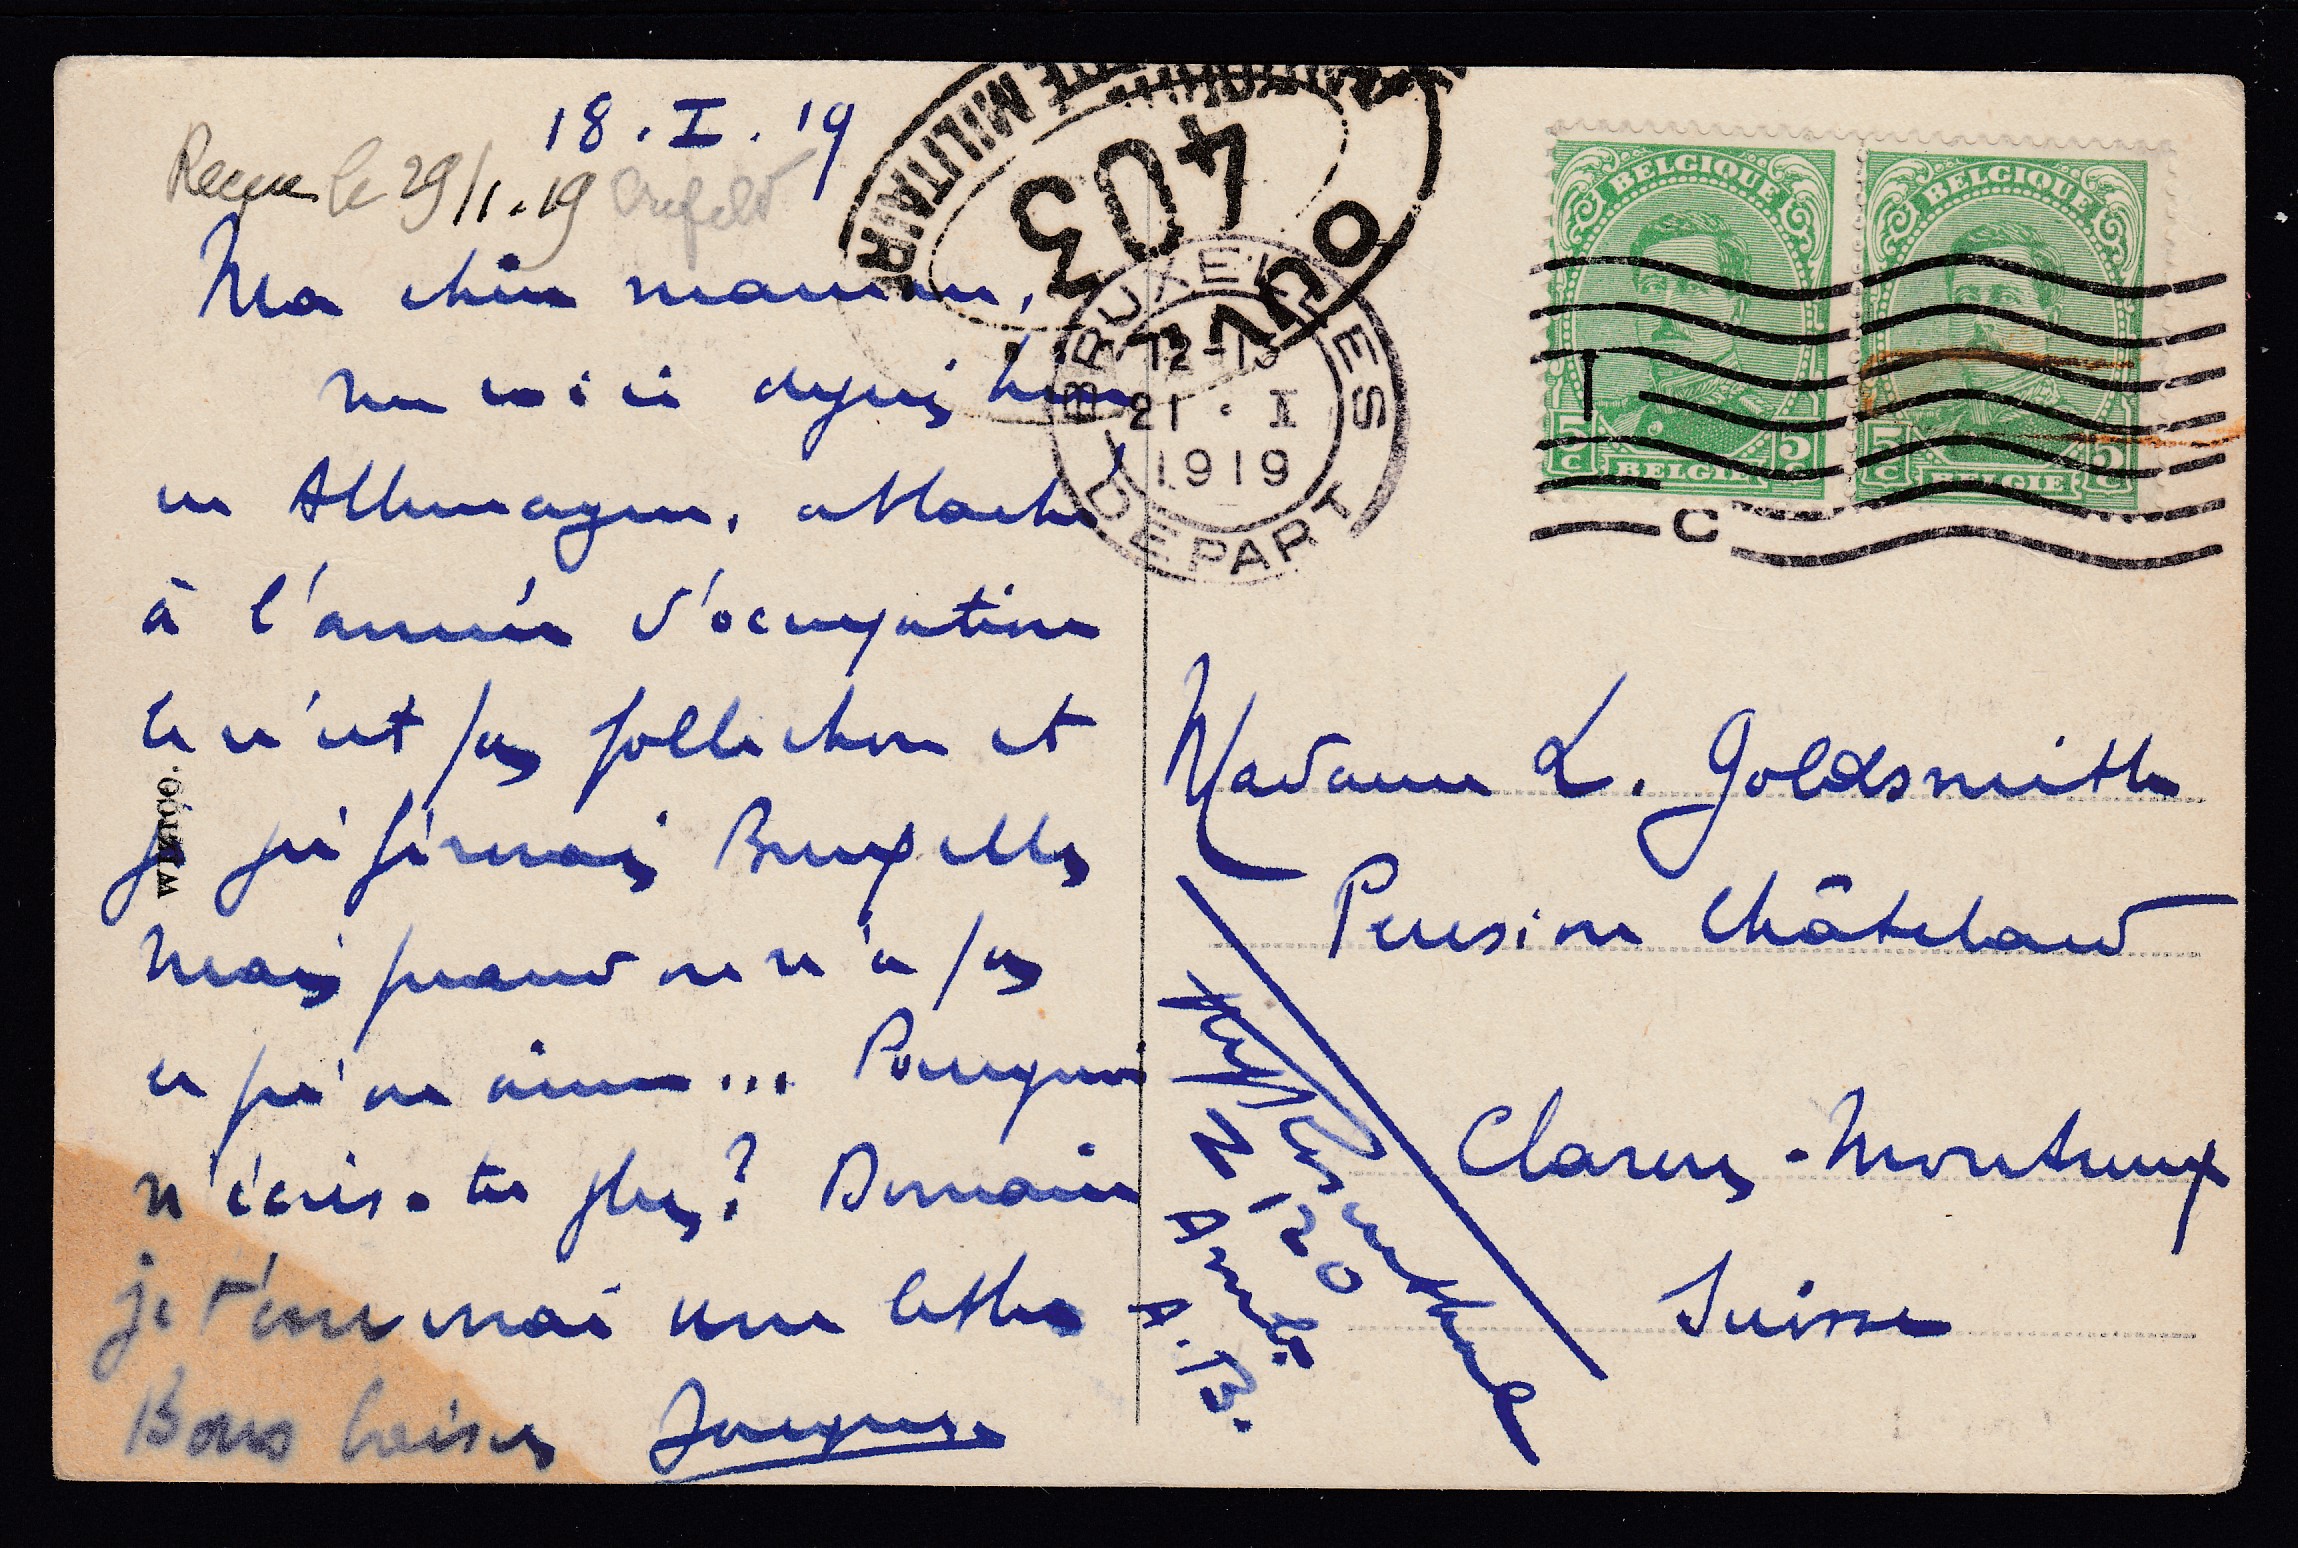 18.I.19
Reçue le 29/1.19 Crefeld
Ma chère maman,
me voici depuis hier
en Allemagne, attaché
à l'armée d'occupation
Ce n'est pas folichon et
je préférerais Bruxelles
mais quand on n'a pas
ce qu'on aime... Pourquoi
n'écris-tu plus? Demain
je t'enverrai une lettre
Bons baisers Jacques
WINCO.
MILITAIRE
403
OUV
BRUXELLES
12-13
21·I
1919
DEPART
BELGIQUE
5 C BELGIE 5 C
BELGIQUE
5 C BELGIE 5 C
T
C
Madame L. Goldsmith
Pension Châtelard
Clarens-Montreux
Suisse
Z 120
A.B.